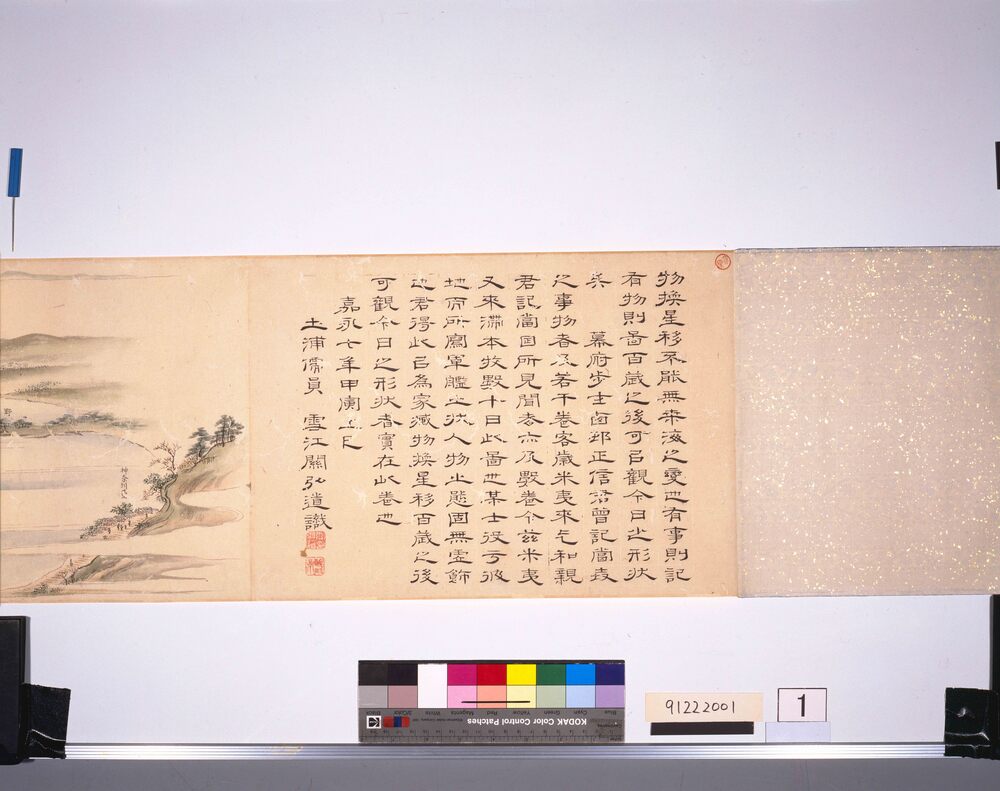 物換星移不能無桒海之變也有事則記
有物則啚百歳之後可㠯觀今日㞢形狀
矣　幕府步士卤邨正信君曽記當
之事物春及若干卷客歳米夷來乞和親
君記當国所見聞夲亦及數卷今茲米夷
又來滯本牧數十日此啚世某士役亏彼
地而所寫軍艦㞢狀人物㞢態固無虛飾
也君得此㠯為家藏物換星移百歳之後
可觀今日之形狀者實在此卷也
嘉永七年甲寅五月
土浦儒員 雪江關弘道識
神奈川
野
91222001
1
KODAK Color Control Patches
Blue
Cyan
Green
Yellow
Red
Magenta
White
3/Color
Black